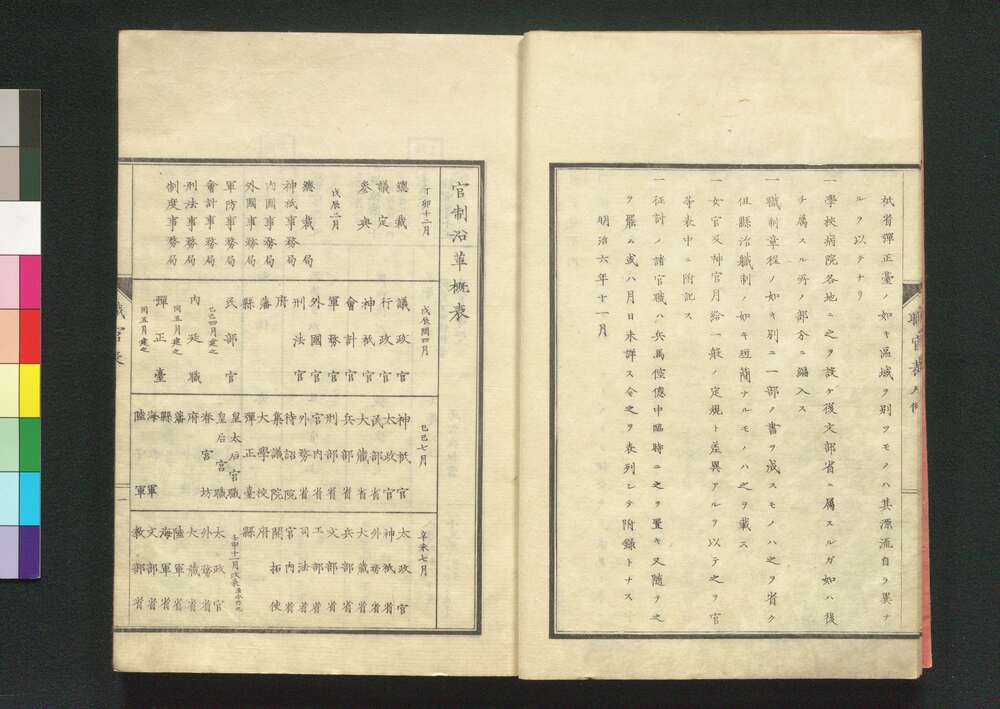 祇省彈正臺ノ如キ區域ヲ別ツモノハ其源流自ラ異ナ
ルヲ以テナリ
一學校病院各地ニ之ヲ設ケ後文部省ニ屬スルガ如ハ後
チ屬スル所ノ部分ニ編入ス
一職制章程ノ如キ別ニ一部ノ書ヲ成スモノハ之ヲ省ク
但縣治職制ノ如キ短簡ナルモノハ之ヲ載ス
一女官及神官月給一般ノ定規ト差異アルヲ以テ之ヲ官
等表中ニ附記ス
一征討ノ諸官職ハ兵馬倥偬中臨時ニ之ヲ置キ又隨テ之
ヲ罷ム或ハ月日未詳ス今之ヲ表列シテ附錄トナス
明治六年十一月
職官表
官制沿革概表
丁卯十二月
總裁
議定
參與
戊辰二月
總裁
神祇事務局
內國事務局
外國事務局
軍防事務局
會計事務局
刑法事務局
制度事務局
戊辰閏四月
議政官
行政官
神祇官
會計官
軍務官
外國官
刑法官
府
藩
縣
民部官
己巳四月建之
內廷職
同五月建之
彈正臺
同五月建之
己巳七月
神祇官
太政官
民部省
大藏省
兵部省
刑部省
宮內省
外務省
待詔院
集議院
大學校
彈正臺
皇太后宮職
皇后宮職
春宮坊
府
藩
縣
海軍
陸軍
辛未七月
太政官
神祇省
外務省
大藏省
兵部省
文部省
工部省
司法省
宮內省
開拓使
府
縣
太政官
外務省
大藏省
陸軍省
海軍省
文部省
教部省
職官表
一